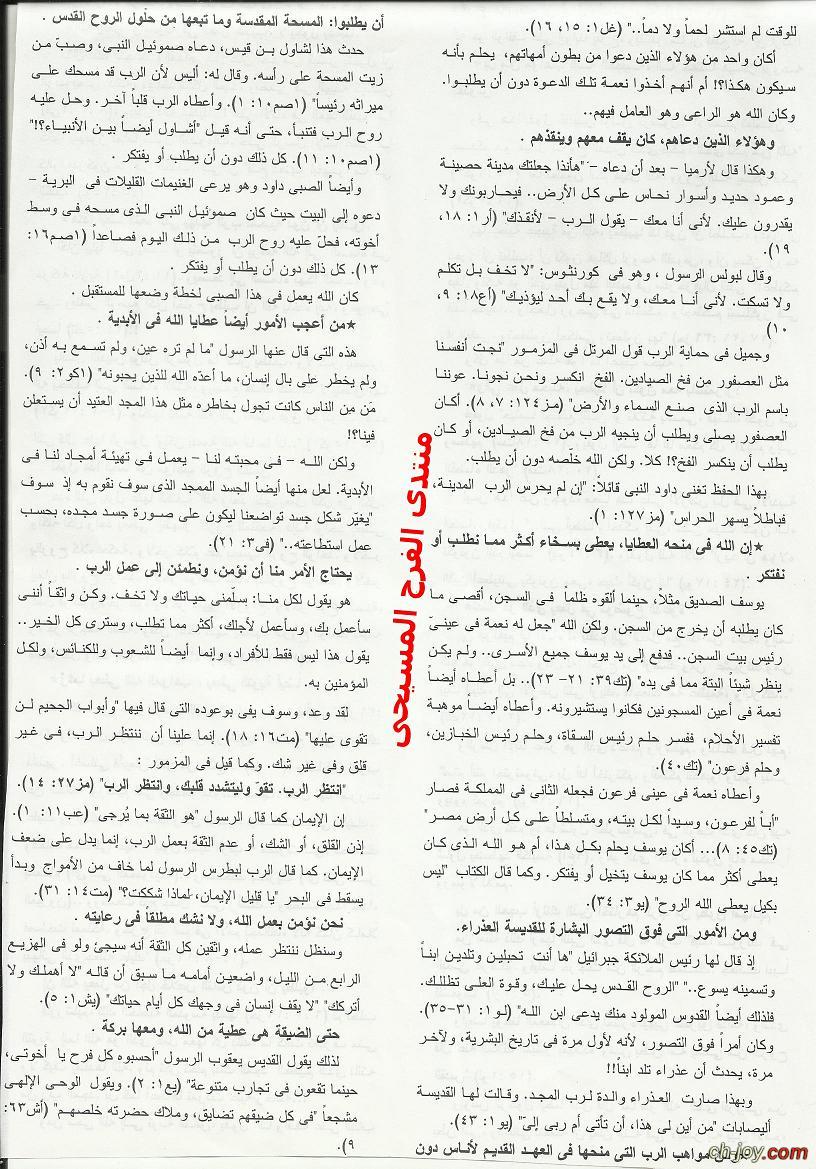 للوقت لم استشر لحماً ولا دماً.." (غل١: ١٥، ١٦).
أكان واحد من هؤلاء الذين دعوا من بطون أمهاتهم، يحلم بأنه
سيكون هكذا؟! أم أنهم أخذوا نعمة تلك الدعوة دون أن يطلبوا.
وكان الله هو الراعى وهو العامل فيهم..
وهؤلاء الذين دعاهم، كان يقف معهم وينقذهم .
وهكذا قال لأرميا – بعد أن دعاه – "هأنذا جعلتك مدينة حصينة
وعمود حديد وأسوار نحاس على كل الأرض.. فيحاربونك ولا
يقدرون عليك. لأنى أنا معك – يقول الرب – لأنقذك" (أر١: ١٨،
١٩).
وقال لبولس الرسول ، وهو فى كورنثوس: "لا تخف بل تكلم
ولا تسكت. لأنى أنا معك، ولا يقع بك أحد ليؤذيك" (أع١٨: ٩،
١٠)
وجميل فى حماية الرب قول المرتل فى المزمور "نجت أنفسنا
مثل العصفور من فخ الصيادين. الفخ انكسر ونحن نجونا. عوننا
باسم الرب الذى صنع السماء والأرض" (مز١٢٤: ٧، ٨). أكان
العصفور يصلى ويطلب أن ينجيه الرب من فخ الصيادين، أو كان
يطلب أن ينكسر الفخ؟! كلا. ولكن الله خلّصه دون أن يطلب.
بهذا الحفظ تغنى داود النبى قائلاً: "إن لم يحرس الرب المدينة،
فباطلاً يسهر الحراس" (مز١٢٧: ١).
★إن الله فى منحه العطايا، يعطى بسخاء أكثر مما نطلب أو
نفتكر .
يوسف الصديق مثلاً، حينما ألقوه ظلما فى السجن، أقصى ما
كان يطلبه أن يخرج من السجن. ولكن الله "جعل له نعمة فى عينىّ
رئيس بيت السجن.. فدفع إلى يد يوسف جميع الأسرى.. ولم يكن
ينظر شيئاً البتة مما فى يده" (تك٣٩: ٢١- ٢٣).. بل أعطاه أيضاً
نعمة فى أعين المسجونين فكانوا يستشيرونه. وأعطاه أيضاً موهبة
تفسير الأحلام، ففسر حلم رئيس السقاة، وحلم رئيس الخبازين،
وحلم فرعون" (تك٤٠).
وأعطاه نعمة فى عينى فرعون فجعله الثانى فى المملكة فصار
"أباً لفرعون، وسيداً لكل بيته، ومتسلطاً على كل أرض مصر"
(تك٤٥: ٨)... أكان يوسف يحلم بكل هذا، أم هو الله الذى كان
يعطى أكثر مما كان يوسف يتخيل أو يفتكر. وكما قال الكتاب "ليس
بكيل يعطى الله الروح" (يو٣: ٣٤).
ومن الأمور التى فوق التصور البشارة للقديسة العذراء.
إذ قال لها رئيس الملائكة جبرائيل "ها أنت تحبلين وتلدين ابناً
وتسمينه يسوع.." "الروح القدس يحل عليك، وقوة العلى تظللك.
فلذلك أيضاً القدوس المولود منك يدعى ابن الله" (لو١: ٣١-٣٥).
وكان أمراً فوق التصور، لأنه لأول مرة فى تاريخ البشرية، ولآخر
مرة، يحدث أن عذراء تلد ابناً!!
وبهذا صارت العذراء والدة لرب المجد. وقالت لها القديسة
أليصابات "من أين لى هذا، أن تأتى أم ربى إلىّ" (يو١: ٤٣).
مواهب الرب التى منحها فى العهد القديم لأناس دون
أن يطلبوا: المسحة المقدسة وما تبعها من حلول الروح القدس .
حدث هذا لشاول بن قيس، دعاه صموئيل النبى، وصبّ من
زيت المسحة على رأسه. وقال له: أليس لأن الرب قد مسحك على
ميراثه رئيساً" (١صم١٠: ١). وأعطاه الرب قلباً آخر. وحل عليه
روح الرب فتنبأ، حتى أنه قيل "أشاول أيضاً بين الأنبياء؟!"
(١صم١٠: ١١). كل ذلك دون أن يطلب أو يفتكر .
وأيضاً الصبى داود وهو يرعى الغنيمات القليلات فى البرية –
دعوه إلى البيت حيث كان صموئيل النبى الذى مسحه فى وسط
أخوته، فحلّ عليه روح الرب من ذلك اليوم فصاعداً (١صم١٦:
١٣). كل ذلك دون أن يطلب أو يفتكر .
كان الله يعمل فى هذا الصبى لخطة وضعها للمستقبل .
★من أعجب الأمور أيضاً عطايا الله فى الأبدية .
هذه التى قال عنها الرسول "ما لم تره عين، ولم تسمع به أذن،
ولم يخطر على بال إنسان، ما أعدّه الله للذين يحبونه" (١كو٢: ٩).
مَن من الناس كانت تجول بخاطره مثل هذا المجد العتيد أن يستعلن
فينا؟!
ولكن الله – فى محبته لنا – يعمل فى تهيئة أمجاد لنا فى
الأبدية. لعل منها أيضاً الجسد الممجد الذى سوف نقوم به إذ سوف
"يغيّر شكل جسد تواضعنا ليكون على صورة جسد مجده، بحسب
عمل استطاعته.." (فى٣: ٢١).
يحتاج الأمر منا أن نؤمن، ونطمئن إلى عمل الرب .
هو يقول لكل منا: سلّمنى حياتك ولا تخف. وكن واثقاً أننى
سأعمل بك، وسأعمل لأجلك، أكثر مما تطلب، وسترى كل الخير..
يقول هذا ليس فقط للأفراد، وإنما أيضاً للشعوب وللكنائس، ولكل
المؤمنين به.
لقد وعد، وسوف يفى بوعوده التى قال فيها "وأبواب الجحيم لن
تقوى عليها" (مت١٦: ١٨). إنما علينا أن ننتظر الرب، فى غير
قلق وفى غير شك. وكما قيل فى المزمور :
"انتظر الرب. تقوّ وليتشدد قلبك، وانتظر الرب" (مز٢٧: ١٤).
إن الإيمان كما قال الرسول "هو الثقة بما يُرجى" (عب١١: ١).
إذن القلق، أو الشك، أو عدم الثقة بعمل الرب، إنما يدل على ضعف
الإيمان. كما قال الرب لبطرس الرسول لما خاف من الأمواج وبدأ
يسقط فى البحر "يا قليل الإيمان، لماذا شككت؟" (مت١٤: ٣١).
نحن نؤمن بعمل الله، ولا نشك مطلقاً فى رعايته .
وسنظل ننتظر عمله، واثقين كل الثقة أنه سيجئ ولو فى الهزيع
الرابع من الليل، واضعين أمامه ما سبق أن قاله "لا أهملك ولا
أتركك" "لا يقف إنسان فى وجهك كل أيام حياتك" (يش١: ٥).
حتى الضيقة هى عطية من الله، ومعها بركة .
لذلك يقول القديس يعقوب الرسول "أحسبوه كل فرح يا أخوتى،
حينما تقعون فى تجارب متنوعة" (يع١: ٢). ويقول الوحى الإلهى
مشجعاً "فى كل ضيقهم تضايق، وملاك حضرته خلصهم" (أش٦٣:
٩).
منتدى الفرح المسيحى
ch-joy.com